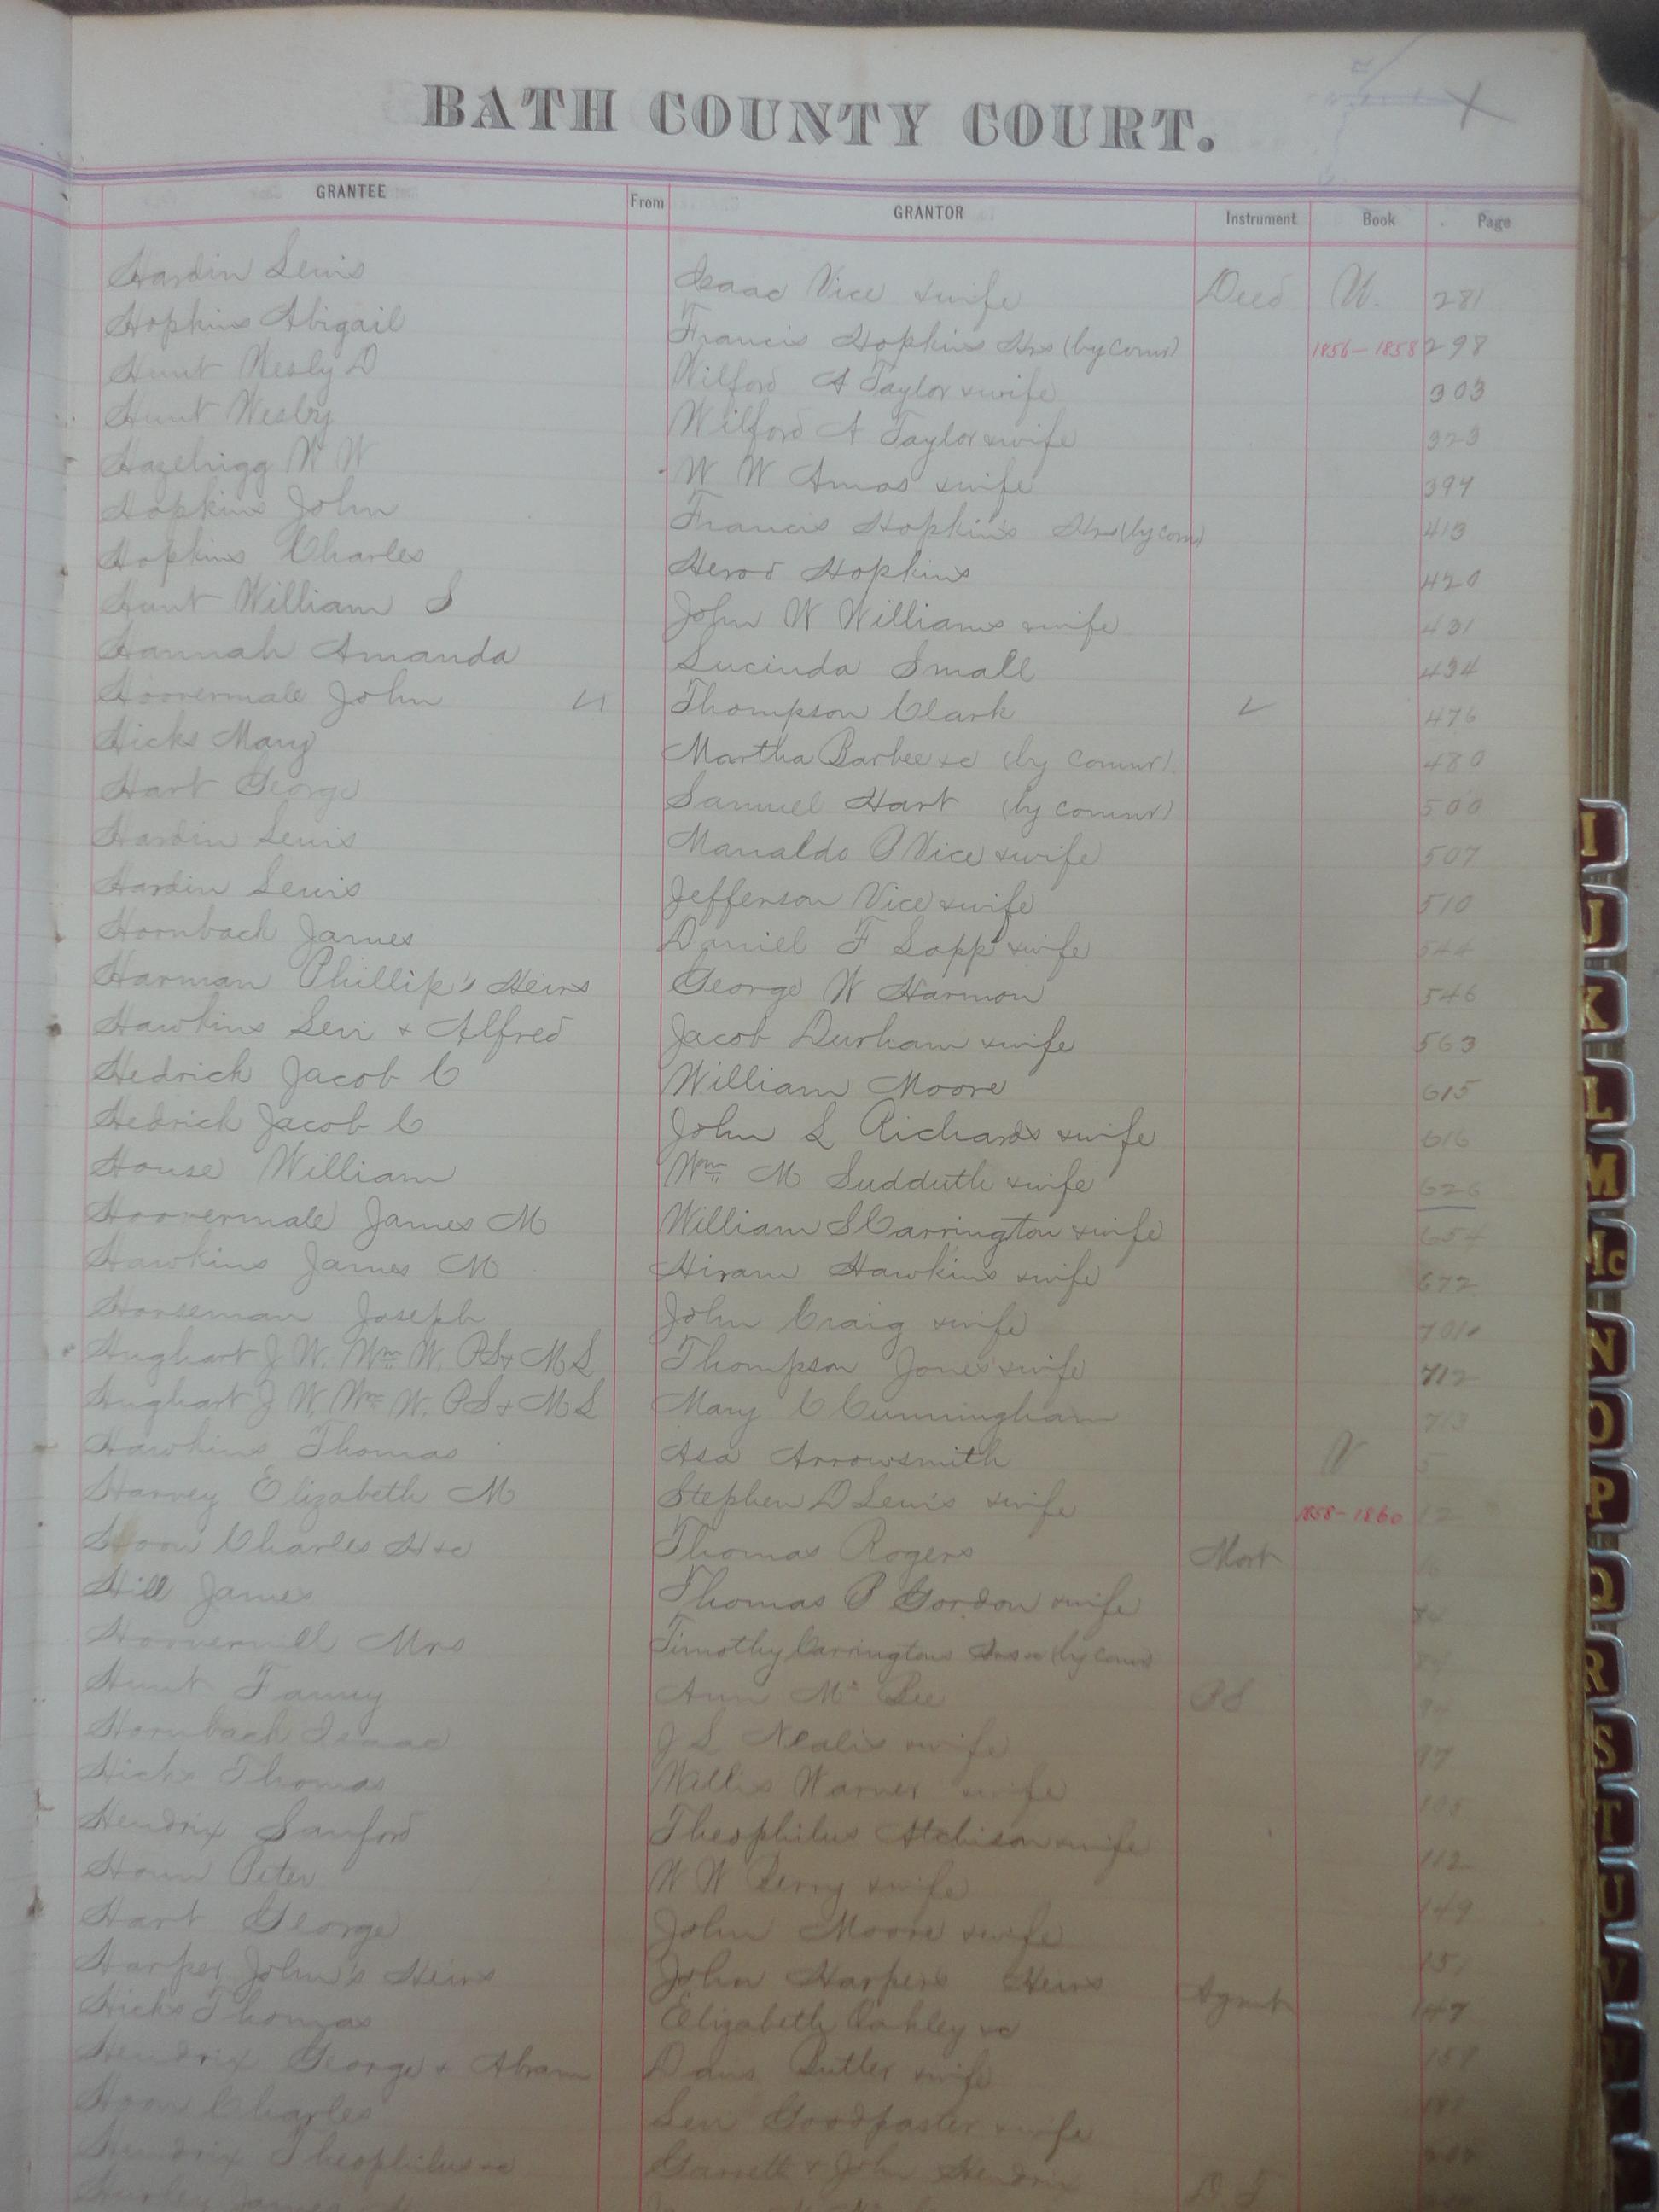 BATH COUNTY COURT.
GRANTEE From GRANTOR Instrument Book Page
Hardin Lewis Isaac Vice & wife Deed U. 281
Hopkins Abigail Francis Hopkins Hrs (by comr) 1856-1858 298
Hunt Wesly D Wilford A Taylor & wife 303
Hunt Wesley Wilford A Taylor & wife 323
Hazelrigg W W W W Amos & wife 394
Hopkins John Francis Hopkins Hrs (by com) 413
Hopkins Charles Herod Hopkins 420
Hunt William S John W Williams & wife 431
Hannah Amanda Lucinda Small 434
Hoovermale John Thompson Clark 476
Hicks Mary Martha Barbee &c (by commr) 480
Hart George Samuel Hart (by commr) 500
Hardin Lewis Manaldo P Vice & wife 507
Hardin Lewis Jefferson Vice & wife 510
Hornback James Daniel F Sapp & wife 544
Harman Phillip's Heirs George W Harmon 546
Hawkins Levi & Alfred Jacob Durham & wife 563
Hedrick Jacob C William Moore 615
Hedrick Jacob C John L Richards & wife 616
House William Wm M Sudduth & wife 626
Hoovermale James M William S Carrington & wife 654
Hawkins James M Hiram Hawkins & wife 672
Horseman Joseph John Craig & wife 701
Hughart J W. Wm W. PS & M L Thompson Jones & wife 712
Hughart J W, Wm W. PS & M L Mary C Cunningham 713
Hawkins Thomas Asa Arrowsmith V 5
Harvey Elizabeth M Stephen D Lewis & wife 1858-1860 12
Hoon Charles H &c Thomas Rogers Mort 16
Hill James Thomas P Gordon & wife
Mrs Timothy Carringtons (by com)
Hunt Fanny Ann Mc Bee PS 94
Hornback Isaac J L Nealis & wife 97
Hicks Thomas Willis Warner & wife 105
Hendrix Sanford Theophilus Atchison & wife 112
Peter W W Perry & wife 149
Hart George John Moore & wife 151
Harper John's Heirs John Harper's Heirs Agmt 147
Hicks Thomas Elizabeth Oakley &c 158
Hendrix George & Abram Davis Butler & wife 187
Hoon Charles Levi Goodpaster & wife
Hendrix Theophilus &c Garrett & John Hendrix D T
James
I
J
K
L
M
Mc
N
O
P
Q
R
S
T
U
V